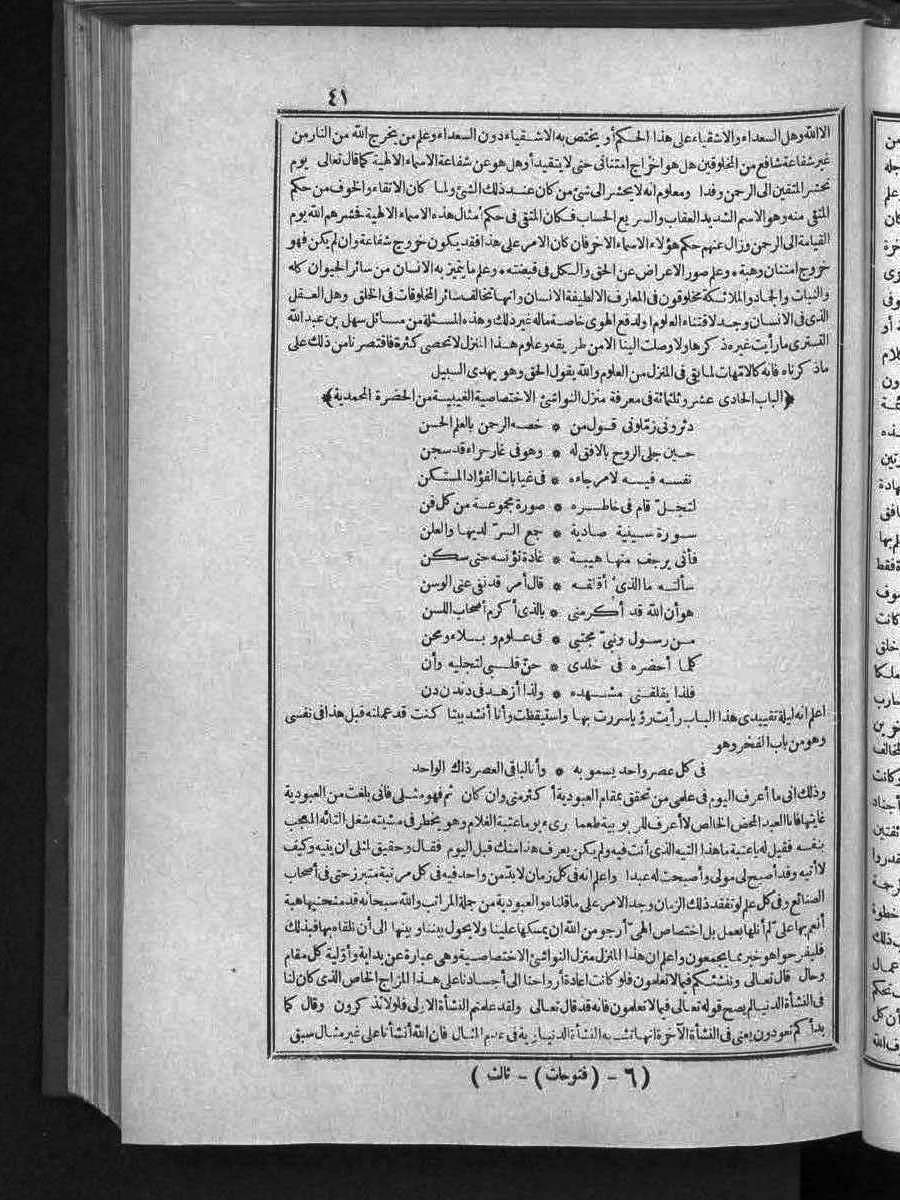 ٤١
الا الله وهل السعداء والاشقياء على هذا الحكم أو يختص به الاشقياء دون السعداء وعلم من يخرج الله من النار من
غير شفاعة شافع من المخلوقين هل هو اخراج امتنانى حتى لا يتقيد أو هل هو عن شفاعة الاسماء الالهية كما قال تعالى يوم
نحشر المتقين الى الرحمن وفدا ومعلوم انه لا يحشر الى شئ من كان عند ذلك الشئ ولما كان الاتقاء والخوف من حكم
المتقى منه وهو الاسم الشديد العقاب والسريع الحساب فكان المتقى فى حكم أمثال هذه الاسماء الالهية فحشرهم الله يوم
القيامة الى الرحمن وزال عنهم حكم هؤلاء الاسماء الاخر فان كان الامر على هذا فقد يكون خروج شفاعة وان لم يكن فهو
خروج امتنان وهبة * وعلم صور الاعراض عن الحق والكل فى قبضته * وعلم ما يتميز به الانسان من سائر الحيوان كله
والنبات والجماد والملائكة مخلوقون فى المعارف الا لطيفة الانسان وانها تخالف سائر المخلوقات فى الخلق وهل العقل
الذى فى الانسان وجد لاقتناء العلوم او لدفع الهوى خاصة ماله غير ذلك وهذه المسئلة من مسائل سهل بن عبد الله
التسترى ما رأيت غيره ذكرها ولا وصلت الينا الا من طريقه وعلوم هذا المنزل لا تحصى كثرة فاقتصرنا من ذلك على
ما ذكرناه فانه كالامهات لما بقى فى المنزل من العلوم والله يقول الحق وهو يهدى السبيل
﴿الباب الحادى عشر وثلثمائة فى معرفة منزل النواشئ الاختصاصية الغيبية من الحضرة المحمدية﴾
دثرونى زملونى قول من * خصه الرحمن بالعلم الحسن
حين جلى الروح بالافق له * وهو فى غار حراء قد سجن
نفسه فيه لامر جاءه * فى غيابات الفؤاد المستكن
لتجلّ قام فى خاطره * صورة مجموعة من كل فن
سورة سينية صادية * جمع السرّ لديها والعلن
فأتى يرجف منها هيبة * غادة تؤنسه حتى سكن
سألته ما الذى أقلقه * قال أمر قد نفى عنى الوسن
هو أن الله قد أكرمنى * بالذى أكرم أصحاب اللسن
من رسول ونبىّ مجتبى * فى علوم و بلاء ومحن
كلما أحضره فى خلدى * حنّ قلبى لتجليه وأن
فلذا يقلقنى مشهده * ولذا أزهد فى دندن دن
اعلم انه ليلة تقييدى هذا الباب رأيت رؤيا سررت بها واستيقظت وأنا أنشد بيتا كنت قد عملته قبل هذا فى نفسى
وهو من باب الفخر وهو
فى كل عصر واحد يسمو به * وأنا لباقى العصر ذاك الواحد
وذلك انى ما أعرف اليوم فى علمى من تحقق بمقام العبودية أكثر منى وان كان ثم فهو مثلى فانى بلغت من العبودية
غايتها فانا العبد المحض الخالص لا أعرف للربوبية طعما رىء يوما عتبة الغلام وهو يخطر فى مشيته شغل التائه المعجب
بنفسه فقيل له يا عتبة ما هذا التيه الذى أنت فيه ولم يكن يعرف هذا منك قبل اليوم فقال وحقيق لمثلى ان يتيه وكيف
لا أتيه وقد أصبح لى مولى وأصبحت له عبدا واعلم انه فى كل زمان لا بدّ من واحد فيه فى كل مرتبة متبرز حتى فى أصحاب
الصنائع وفى كل علم لو تفقد ذلك الزمان وجد الامر على ما قلناه والعبودية من جملة المراتب والله سبحانه قد منحنيها هبة
أنعم بها علىّ لم أنلها بعمل بل اختصاص الهىّ أرجو من الله ان يمسكها علينا ولا يحول بيننا و بينها الى أن نلقاه بها فبذلك
فليفرحوا هو خير مما يجمعون واعلم ان هذا المنزل منزل النواشئ الاختصاصية وهى عبارة عن بداية وأوّلية كل مقام
وحال قال تعالى وننشئكم فيما لا تعلمون فلو كانت اعادة أرواحنا الى أجسادنا على هذا المزاج الخاص الذى كان لنا
فى النشأة الدنيا لم يصح قوله تعالى فيما لا تعلمون فانه قد قال تعالى ولقد علمتم النشأة الاولى فلولا تذكرون وقال كما
بدأكم تعودون يعنى فى النشأة الآخرة انها تشبه النشأة الدنياوية فى عدم المثال فان الله أنشأنا على غير مثال سبق
(٦ - (فتوحات) - ثالث)